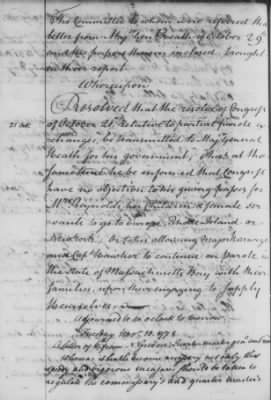 The Committee to whom were referred the
letter from Maj. Gen Heath of October 29
and the papers therein inclosed brought
in their report
Whereupon
Resolved that the resolve of Congress
21 Oct.
of October 21, relative to partial parole
exchanges, be transmitted to Maj. General
Heath for his government; That at the
same time he be informed that Congress
have no objection to his giving passes for
Mrs Reynolds, her children & female ser
vants to go to Rhode Island or
New York, or to his allowing Major
and Cap. to continue on parole in
the State of Massachusetts Bay with their
families, upon their engaging to supply
themselves.
Adjourned to 10 oClock to Morrow.
Tuesday Nov. 10. 1778
A letter of from N. Greene quarter master gen. was read
Whereas it hath become necessary not only that
speedy and vigorous measures should be taken to
regulate the commissary's and quarter master's